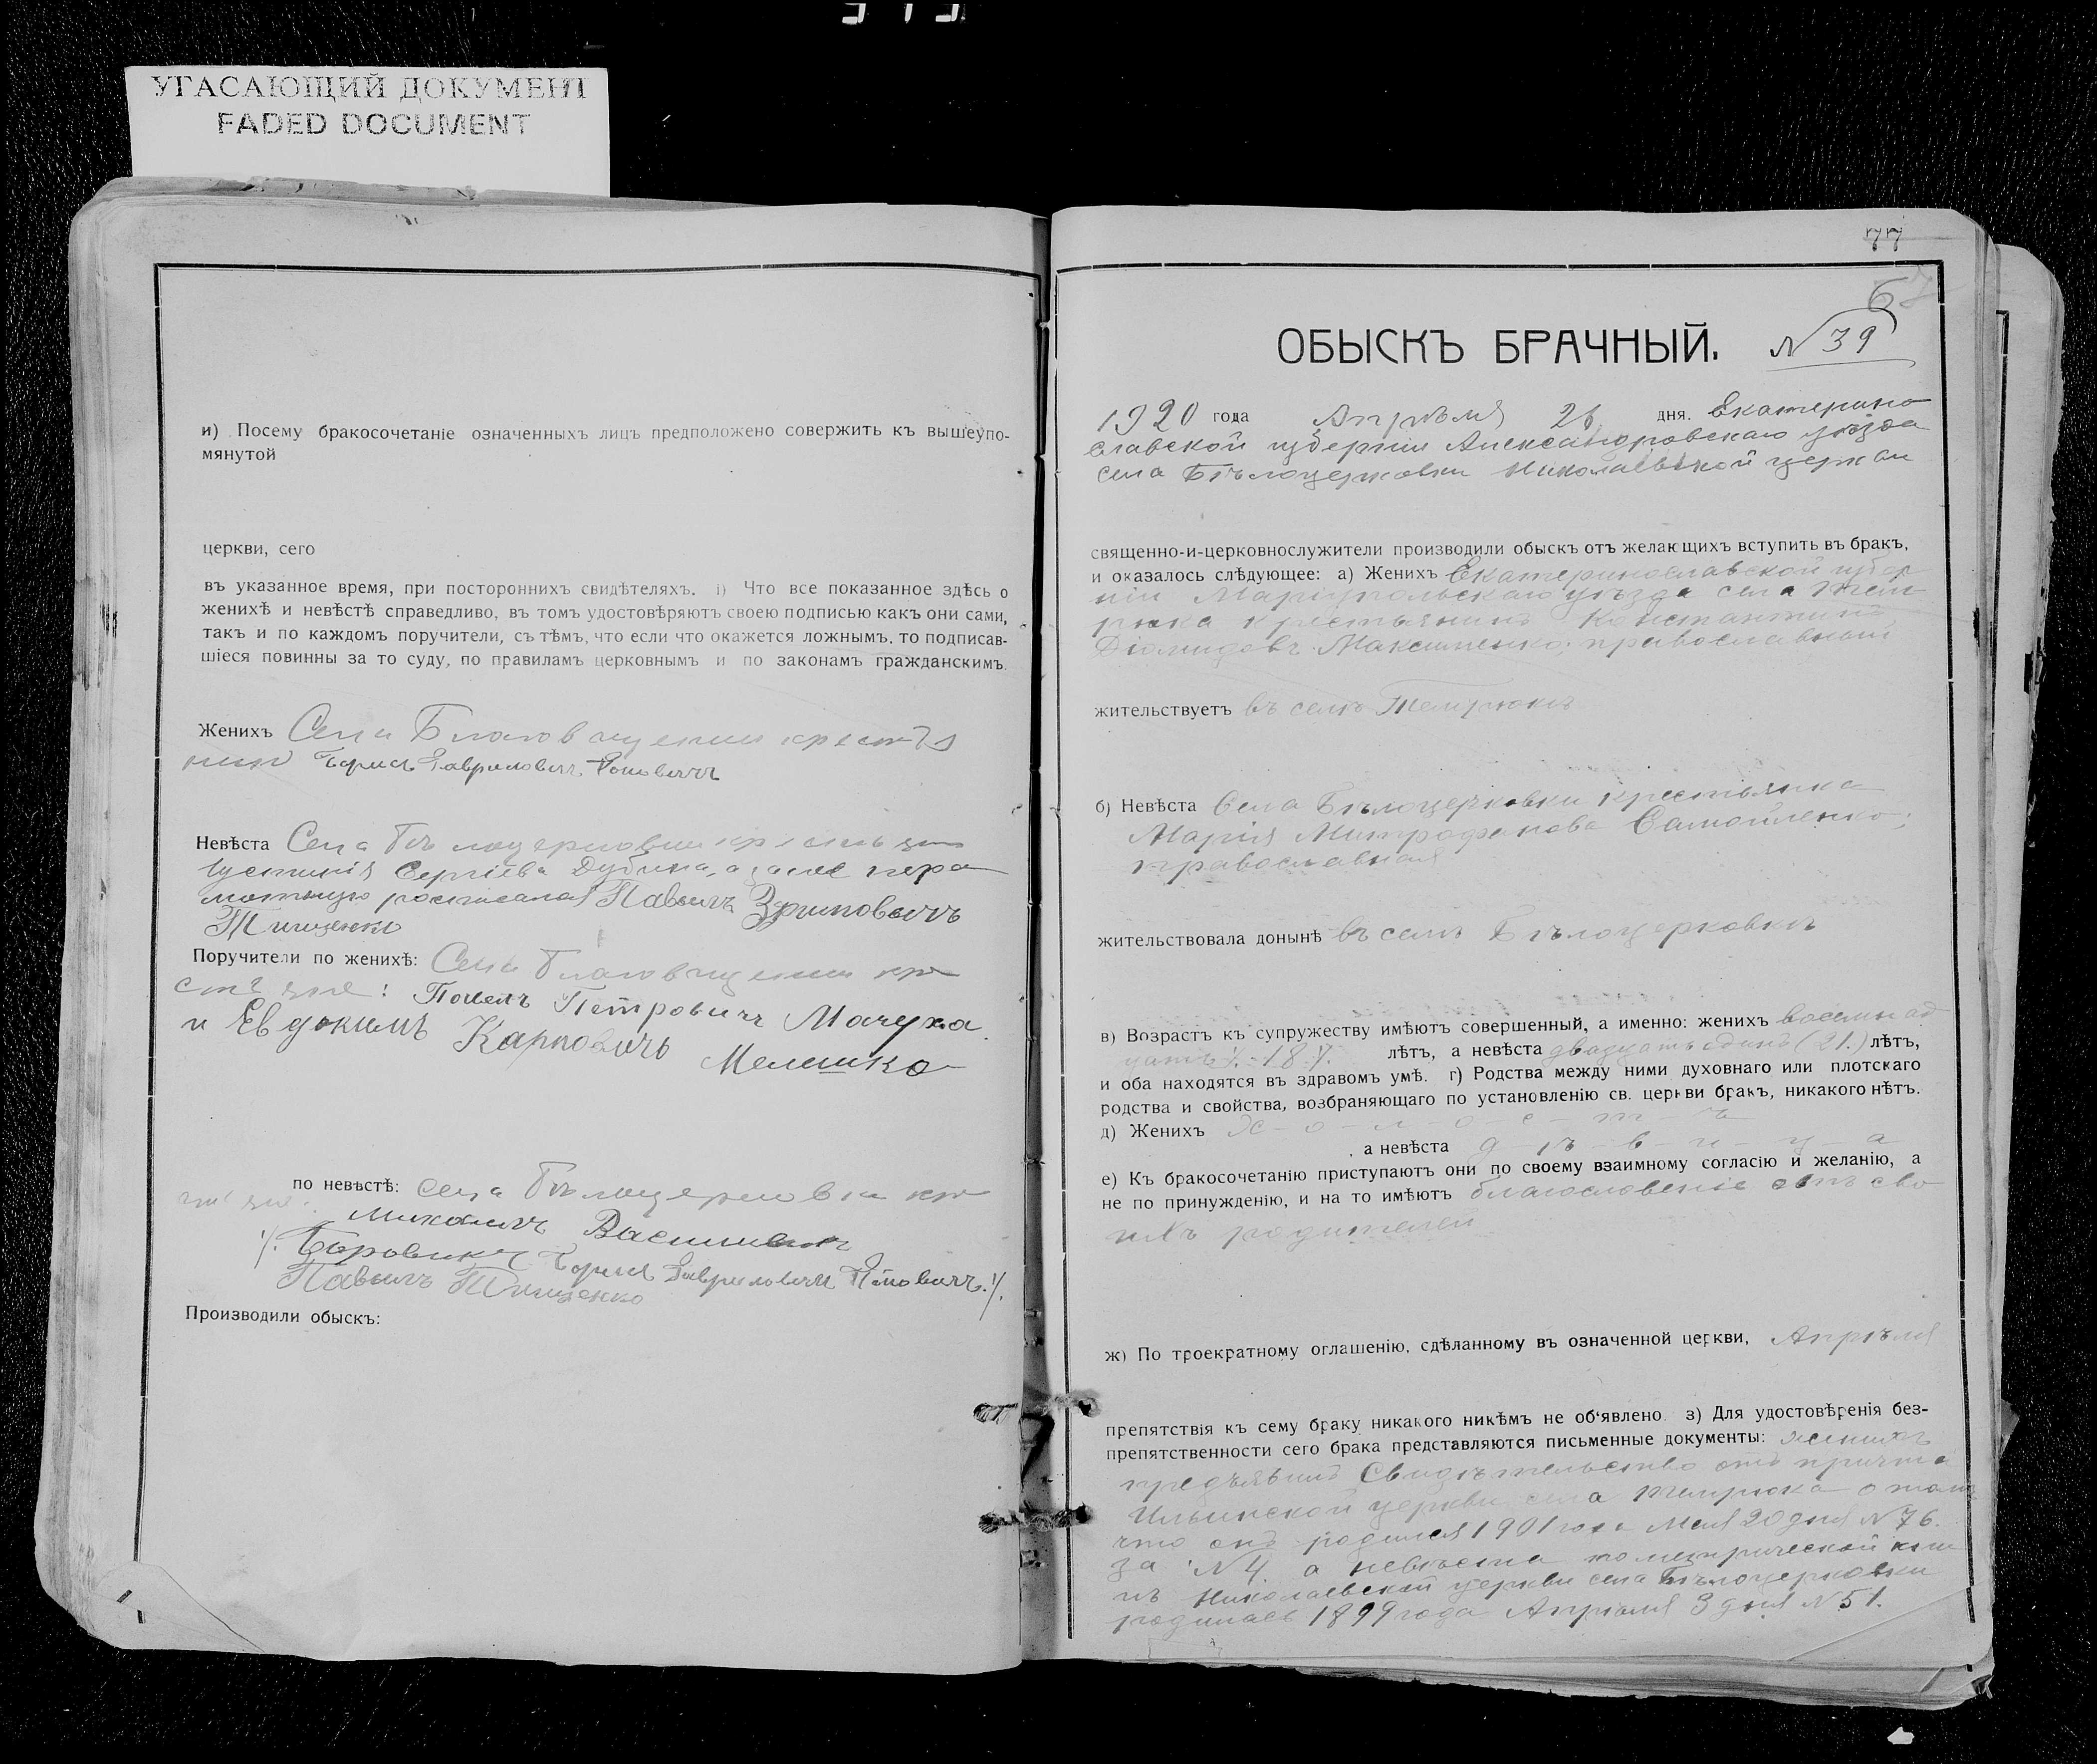 УГАСАЮЩИЙ ДОКУМЕНТ
FADED DOCUMENT
и) Посему бракосочетаніе означенныхъ лицъ предположено совержить къ вышеупо-
мянутой
церкви, сего
въ указанное время, при постороннихъ свидѣтеляхъ. і) Что все показанное здѣсь о
женихѣ и невѣстѣ справедливо, въ томъ удостовѣряютъ своею подписью какъ они сами,
такъ и по каждомъ поручители, съ тѣмъ, что если что окажется ложнымъ, то подписав-
шіеся повинны за то суду, по правиламъ церковнымъ и по законамъ гражданскимъ.
Женихъ Села Благовѣщенки крестья
нин Борисъ Гавриловичъ Поповичъ
Невѣста Села Бѣлоцерковки крестьян
Іустинія Сергіева Дубина, а за нее негра
мотную росписался Павелъ
Тищенко
Поручители по женихѣ: Села Благовѣщенки кре
стьяне: Павелъ Петровичъ Мачуха
и Евдокимъ Карповичъ Мелешко
по невѣстѣ: села Бѣлоцерковки кре
стьяне: Михаилъ
Боровикъ Борисъ Гавриловичъ Поповичъ ./.
Павелъ Тищенко
Производили обыскъ:
77
6
ОБЫСКЪ БРАЧНЫЙ. N 39
1920 года Апрѣля 26 дня. Екатерино
славской губерніи Александровскаго уѣзда
села Бѣлоцерковки Николаевской церкви
священно-и-церковнослужители производили обыскъ отъ желающихъ вступить въ бракъ,
и оказалось слѣдующее: а) Женихъ Екатеринославской губер
ніи Маріупольскаго уѣзда села Тем
рюка крестьянинъ Константинъ
Діомидовъ Максименко; православный
жительствуетъ въ селѣ Темрюкѣ
б) Невѣста Села Бѣлоцерковки крестьянка
Марія Митрофанова Самойленко;
православная
жительствовала донынѣ въ селѣ Бѣлоцерковкѣ
в) Возрастъ къ супружеству имѣютъ совершенный, а именно: женихъ восемнад
цать /.18./. лѣтъ, а невѣста двадцать одинъ (21.) лѣтъ,
и оба находятся въ здравомъ умѣ. г) Родства между ними духовнаго или плотскаго
родства и свойства, возбраняющаго по установленію св. церкви бракъ, никакого нѣтъ.
д) Женихъ х-о-л-о-с-т-ъ
а невѣста д-ѣ-в-и-ц-а
е) Къ бракосочетанію приступаютъ они по своему взаимному согласію и желанію, а
не по принужденію, и на то имѣютъ благословеніе отъ сво
ихъ родителей
ж) По троекратному оглашенію, сдѣланному въ означенной церкви, Апрѣля
препятствія къ сему браку никакого никѣмъ не об‘явлено. з) Для удостовѣренія без-
препятственности сего брака представляются письменные документы: женихъ
предъявилъ Свидѣтельство отъ причта
Ильинской церкви села Темрюка о томъ
что онъ родился 1901 года Мая 20 дня N 76.
за N 4. а невѣста по метрической кни
гѣ Николаевской церкви села Бѣлоцерковки
родилась 1899 года Апрѣля 3 дня N 51.